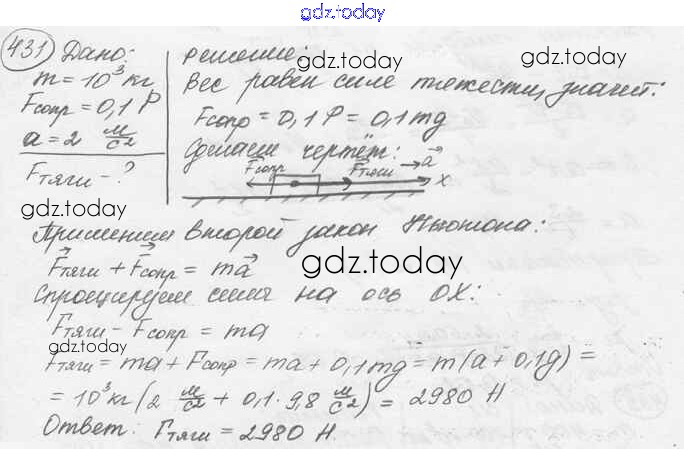 gdz.today
431 Дано:
m = 10³ кг
Fсопр = 0,1 P
a = 2 м/с²
Fтяги - ?
gdz.today
Решение:
gdz.today
Вес равен силе тяжести, значит:
Fсопр = 0,1 P = 0,1 mg
gdz.today
Сделаем чертёж:
Fсопр Fтяги a x
Применим второй закон Ньютона:
Fтяги + Fсопр = ma
gdz.today
Спроецируем силы на ось OX:
Fтяги - Fсопр = ma
gdz.today
Fтяги = ma + Fсопр = ma + 0,1 mg = m(a + 0,1g) =
= 10³ кг (2 м/с² + 0,1 · 9,8 м/с²) = 2980 Н
Ответ: Fтяги = 2980 Н.
gdz.today